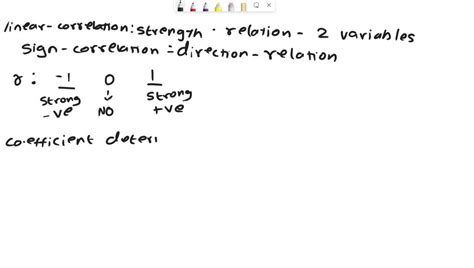 linear-correlation: strength · relation - 2 variables
sign-correlation = direction-relation
r: -1 0 1
strong NO strong
-ve +ve
coefficient deter